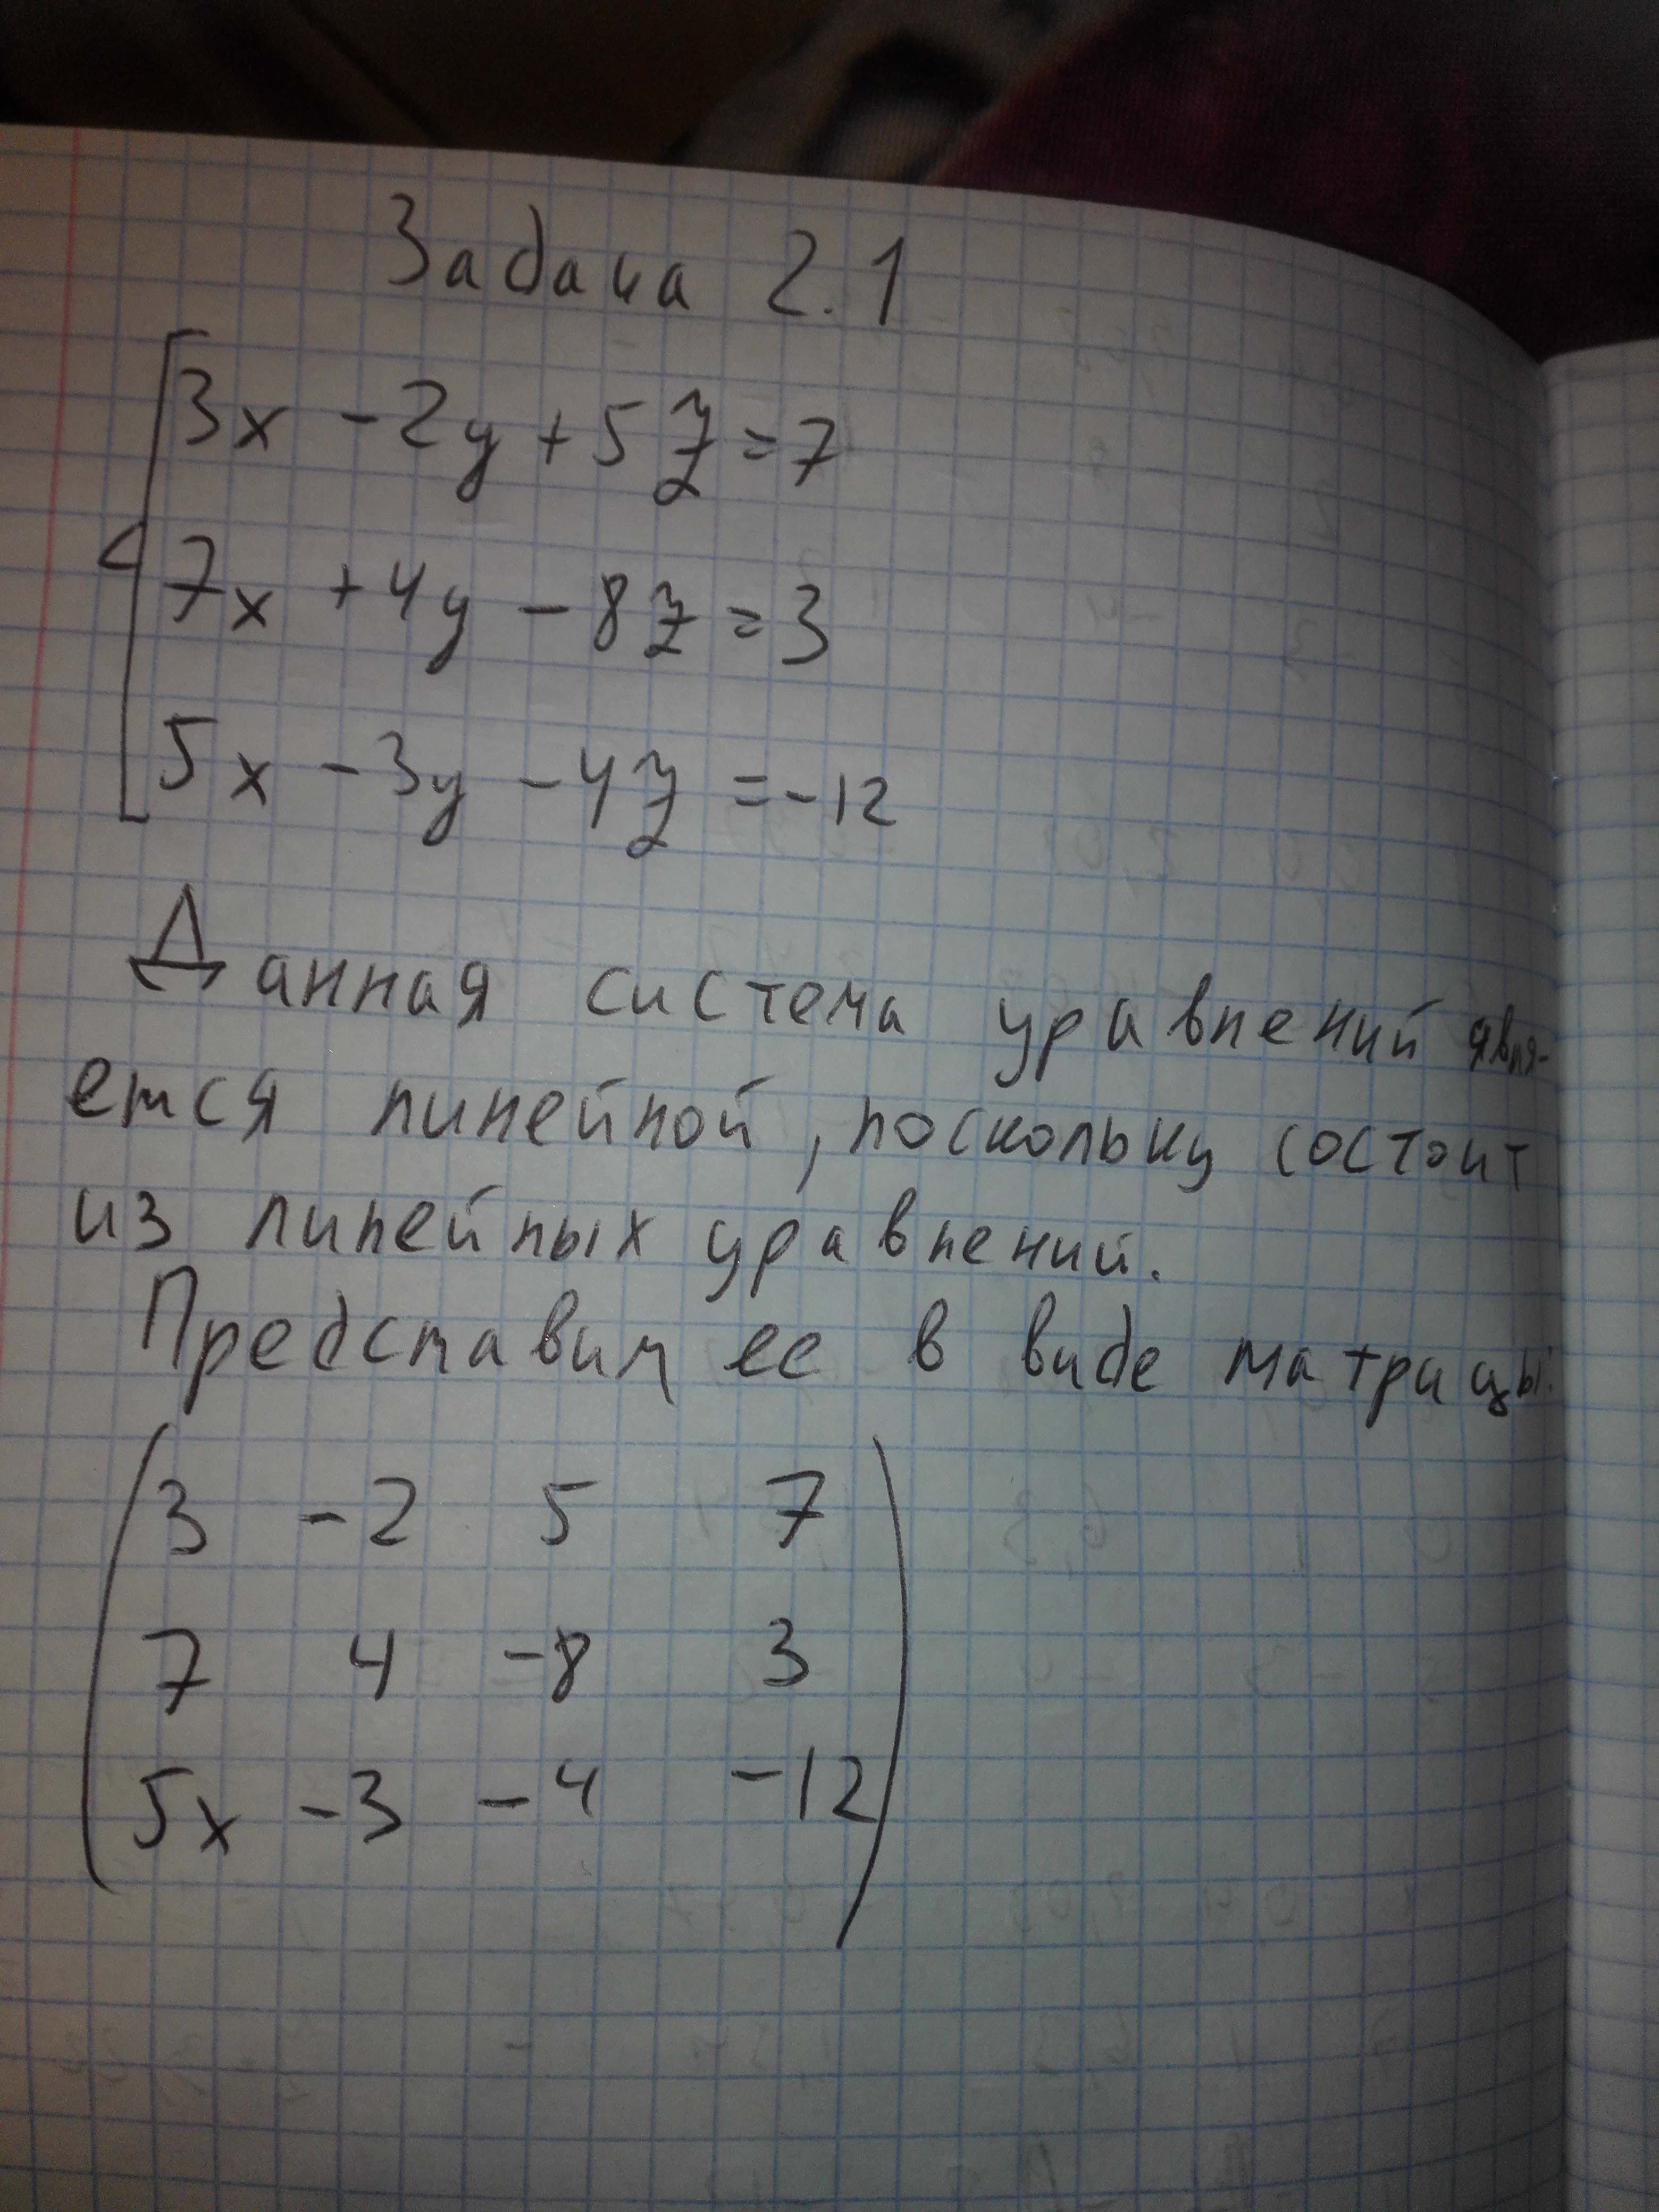 Задача 2.1
3x -2y +5z=7
7x +4y -8z=3
5x -3y -4z =-12
Данная система уравнений явля-
ется линейной, поскольку состоит
из линейных уравнений.
Представим ее в виде матрицы:
3 -2 5 7
7 4 -8 3
5x -3 -4 -12